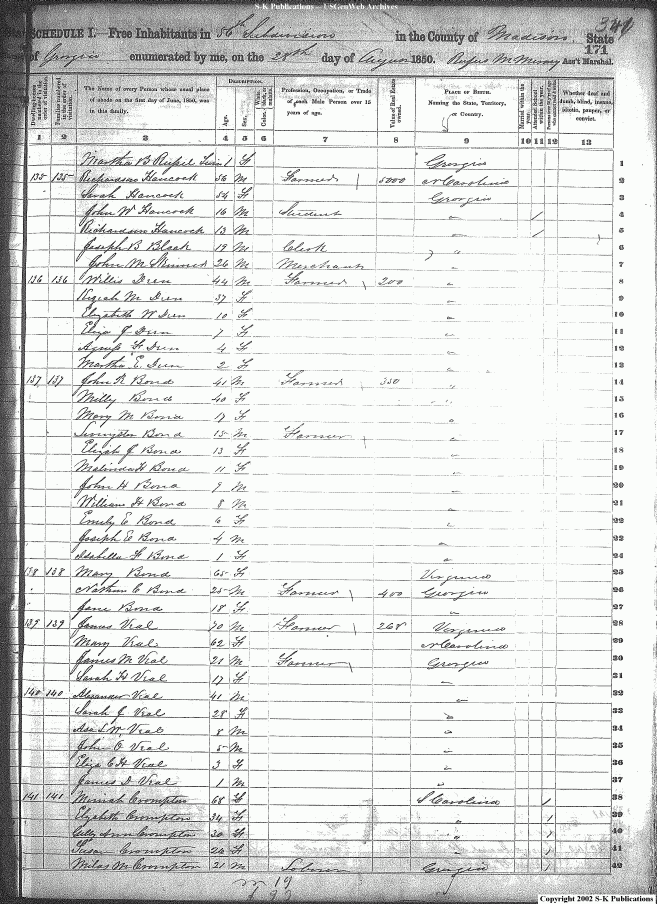 S-K Publications -- USGenWeb Archives
349
SCHEDULE I.—Free Inhabitants in 56th Subdivision in the County of Madison State
171
of Georgia enumerated by me, on the 28th day of August 1850. Rufus M Meroney Ass't Marshal.
The Name of every Person whose usual place of abode on the first day of June, 1850, was in this family.
DESCRIPTION.
Age.
Sex.
Profession, Occupation, or Trade of each Male Person over 15 years of age.
Value of Real Estate owned.
PLACE OF BIRTH. Naming the State, Territory, or Country.
Married within the year.
Attended School within the year.
Whether deaf and dumb, blind, insane, idiotic, pauper, or convict.
1 2 3 4 5 6 7 8 9 10 11 12 13
Martha B 1 F Georgia 1
135 135 Richardson Hancock 56 M Farmer 5000 N Carolina 2
Sarah Hancock 54 F Georgia 3
John W Hancock 16 M Student " / 4
Richardson Hancock 13 M " / 5
Joseph B Black 19 M Clerk " 6
John M Skinner 26 M Merchant " 7
136 136 Willis 44 M Farmer 200 " 8
M 37 F " 9
Elizabeth W 10 F " 10
Eliza J 7 F " 11
4 F " 12
Martha E 2 F " 13
137 137 John R Bond 41 M Farmer 350 " 14
Milly Bond 40 F " 15
Mary M Bond 17 F " 16
Livingston Bond 15 M Farmer " 17
Elizah J Bond 13 F " 18
Malinda H Bond 11 F " 19
John H Bond 9 M " 20
William H Bond 8 M " 21
Emily E Bond 6 F " 22
Joseph E Bond 4 M " 23
Isabella F Bond 1 F " 24
138 138 Mary Bond 65 F Virginia 25
Nathan C Bond 25 M Farmer 400 Georgia 26
Jane Bond 18 F " 27
139 139 James Veal 70 M Farmer 268 Virginia 28
Mary Veal 62 F N Carolina 29
James M Veal 21 M Farmer Georgia 30
Sarah H Veal 17 F " 31
140 140 Alexander Veal 41 M " 32
Sarah J Veal 28 F " 33
Asa S W Veal 8 M " 34
John O Veal 5 M " 35
Eliza C H Veal 3 F " 36
James D Veal 1 M " 37
141 141 Crompton 68 F S Carolina 1 38
Elizabeth Crompton 34 F " 1 39
Ann Crompton 30 F " 1 40
Susan Crompton 24 F " 1 41
Milas M Crompton 21 M Laborer Georgia 1 42
m 19
Copyright 2002 S-K Publications